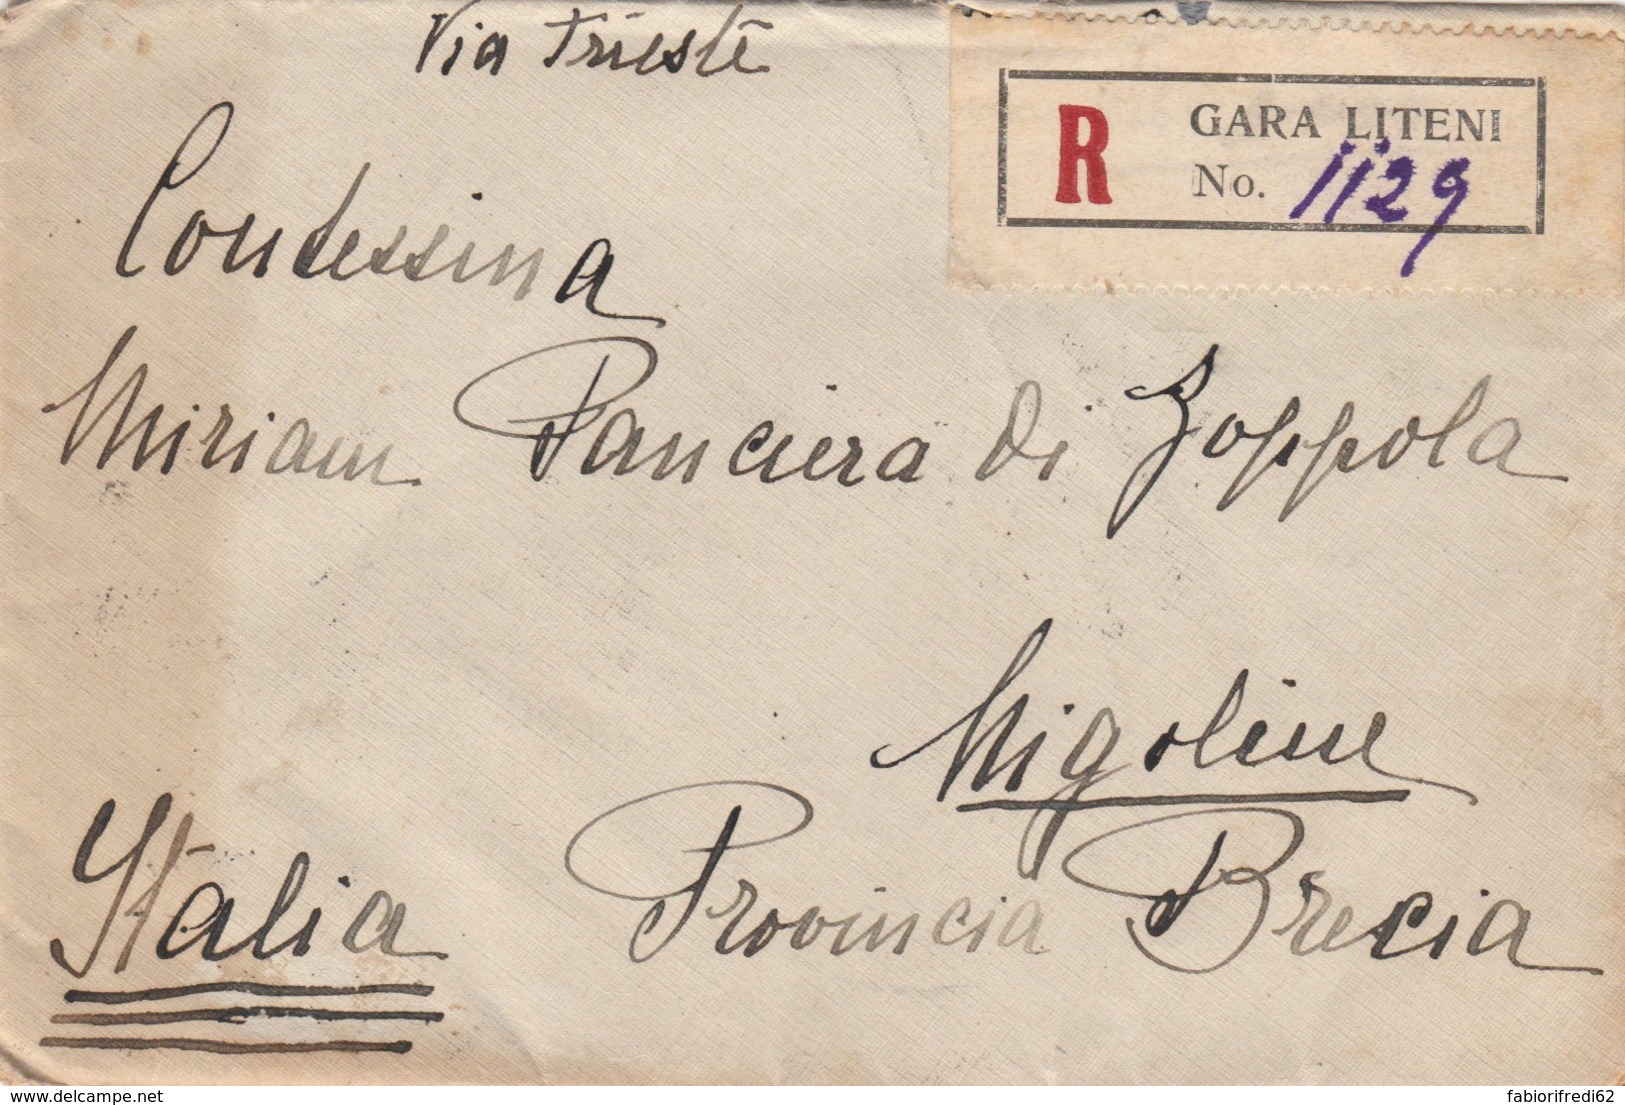 Via Trieste
R GARA LITENI
No. 1129
Contessina
Miriam Panciera di Zoppola
Migoline
Italia Provincia Brecia
delcampe.net
fabiorifredi62